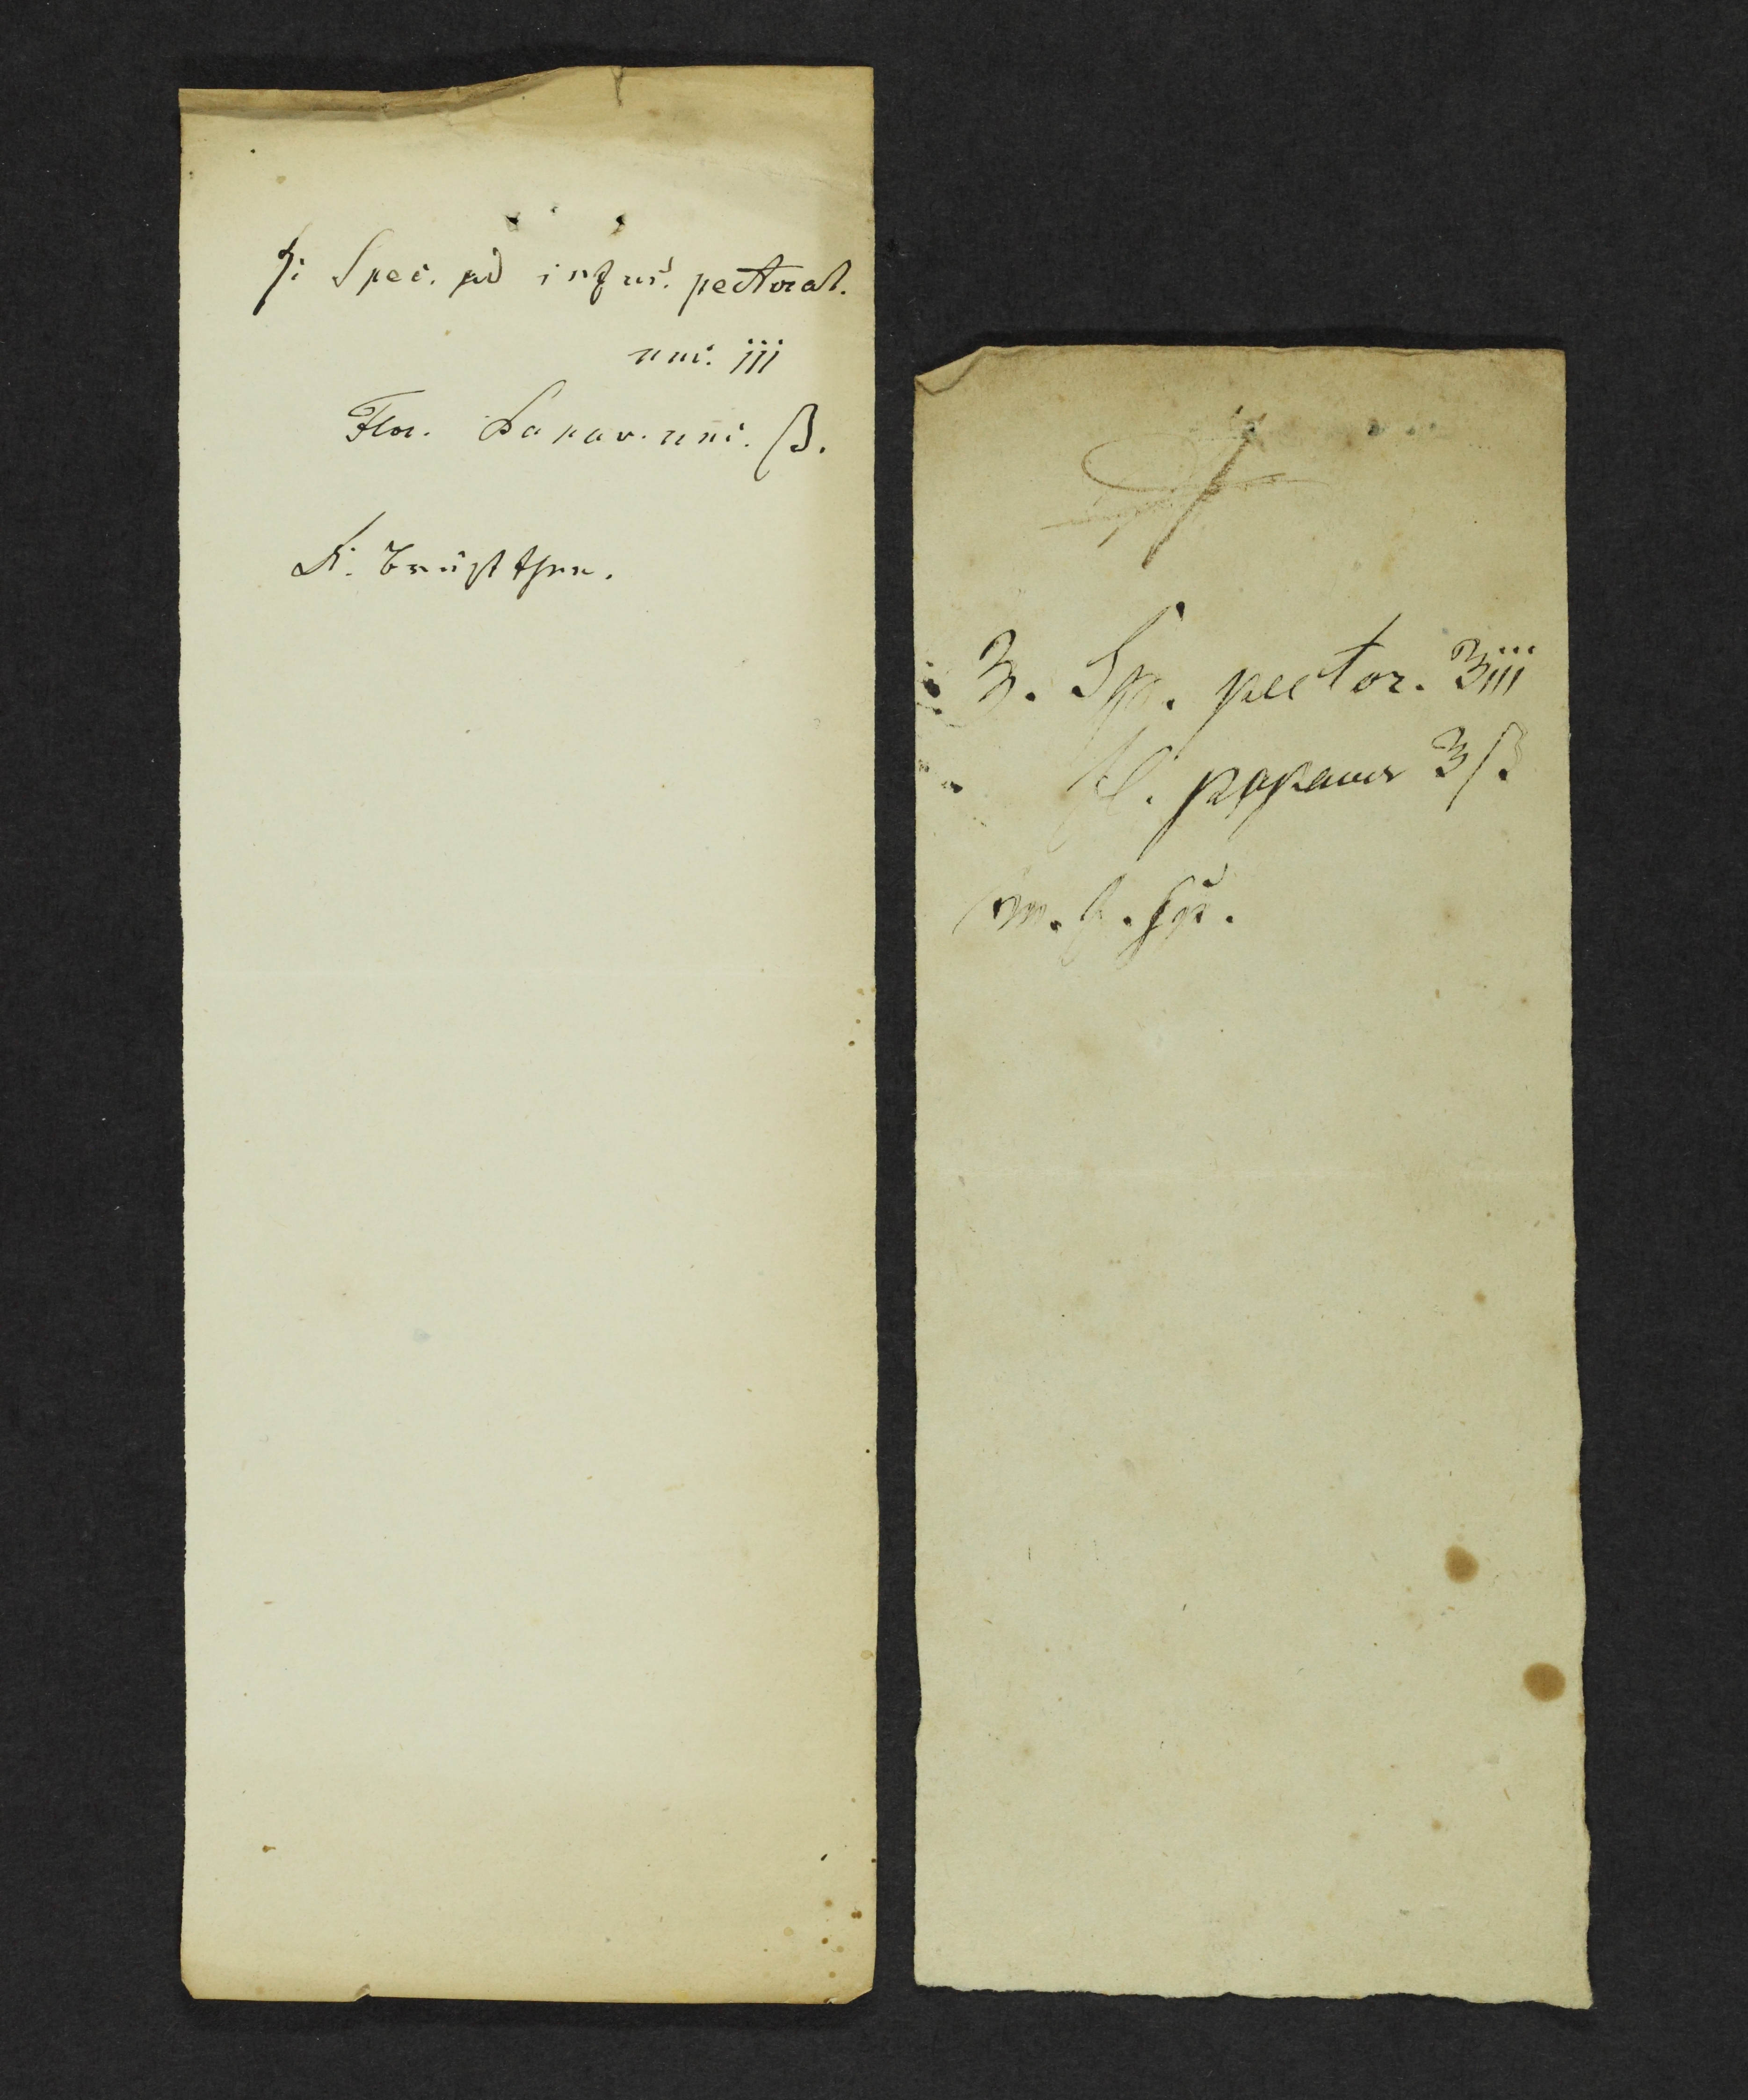 ℞: Spec. ad infus. pectoral.
unc. iii
Flor. Papav. unc. ß.
S. Brustthee.
3. Sp. pector. ℥iii
fl. papaver ℥ß
m. f. sp.